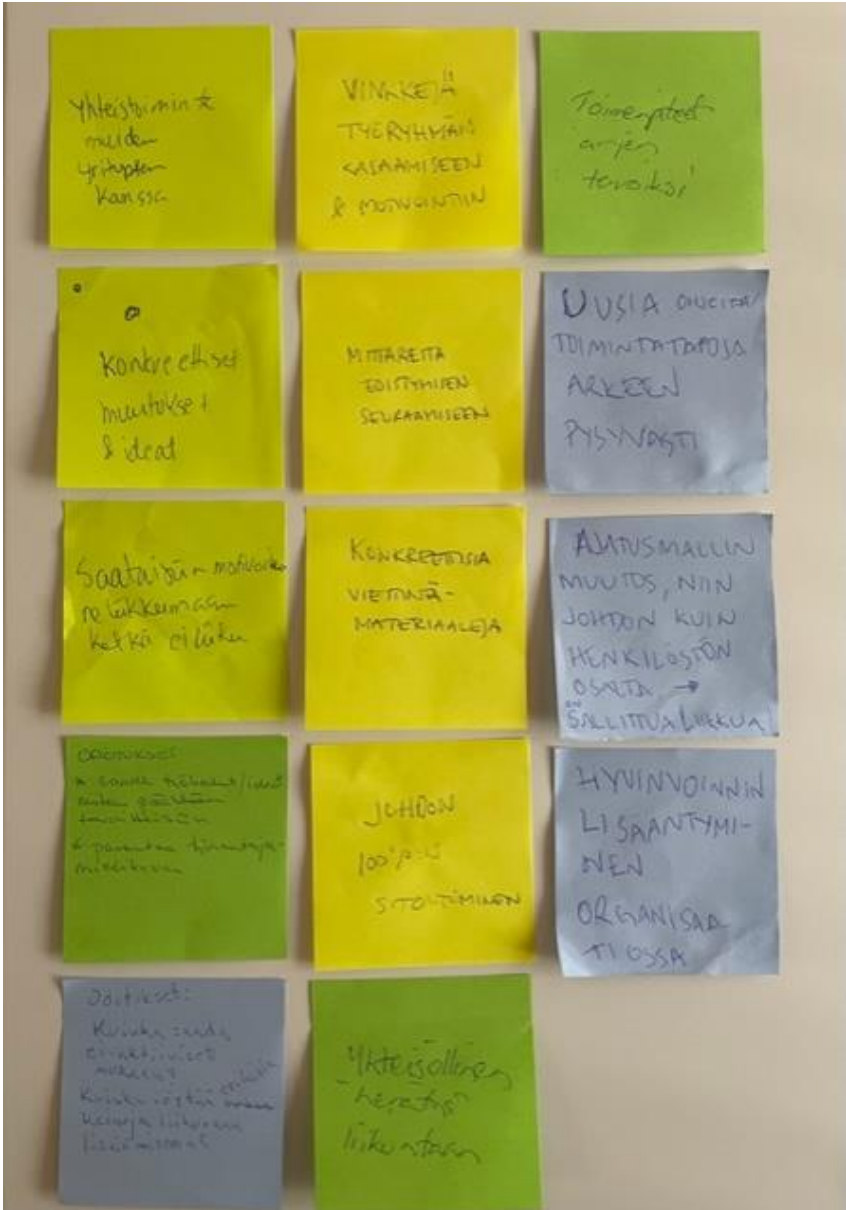 Yhteistoiminta
muiden
yritysten
kanssa
VINKKEJÄ
TYÖRYHMÄN
KASAAMISEEN
& MOTIVOINTIIN
Toimenpiteet
arjen
tavoiksi
Konkreettiset
muutokset
& ideat
MITTAREITA
EDISTYMISEN
SEURAAMISEEN
UUSIA
TOIMINTATAPOJA
ARKEEN
PYSYVÄSTI
Saataisiin motivoitua
liikkumaan
ketkä ei liiku
KONKREETTISIA
VIESTINTÄ-
MATERIAALEJA
AJATUSMALLIN
MUUTOS, NIIN
JOHDON KUIN
HENKILÖSTÖN
OSALTA →
ON
SALLITTUA LIIKKUA!
ODOTUKSET:
* saada työkalut/ideat
miten päästään
tavoitteisiin
* parantaa työnantaja-
mielikuvaa
JOHDON
100%:N
SITOUTUMINEN
HYVINVOINNIN
LISÄÄNTYMI-
NEN
ORGANISAA
TIOSSA
Odotukset:
Kuinka saada
epäaktiiviset
mukaan?
Kuinka löytää
keinoja liikunnan
lisäämiseen?
Yhteisöllinen
"herätys"
liikuntaan